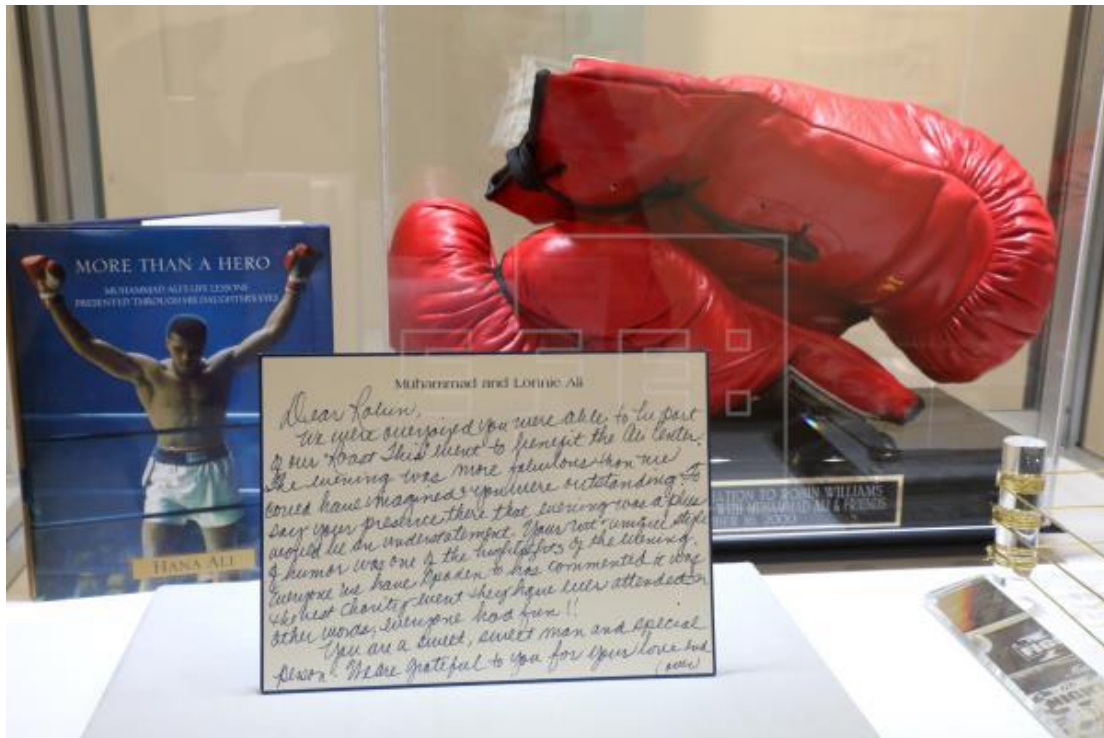 MORE THAN A HERO
MUHAMMAD ALI'S LIFE LESSONS
PRESENTED THROUGH HIS DAUGHTER'S EYES
HANA ALI
Muhammad and Lonnie Ali
Dear Robin,
We were overjoyed you were able to be part
of our "Roast This" event to benefit the Ali Center.
The evening was more fabulous than we
could have imagined & you were outstanding. To
say your presence there that evening was a plus
would be an understatement. Your wit & unique style
of humor was one of the highlights of the evening.
Everyone we have spoken to has commented it was
the best charity event they have ever attended. In
other words, everyone had fun!!
You are a sweet, sweet man and special
person. We are grateful to you for your love and
(over)
ATION TO ROBIN WILLIAMS
WITH MUHAMMAD ALI & FRIENDS
BER 16, 2000
EFE: